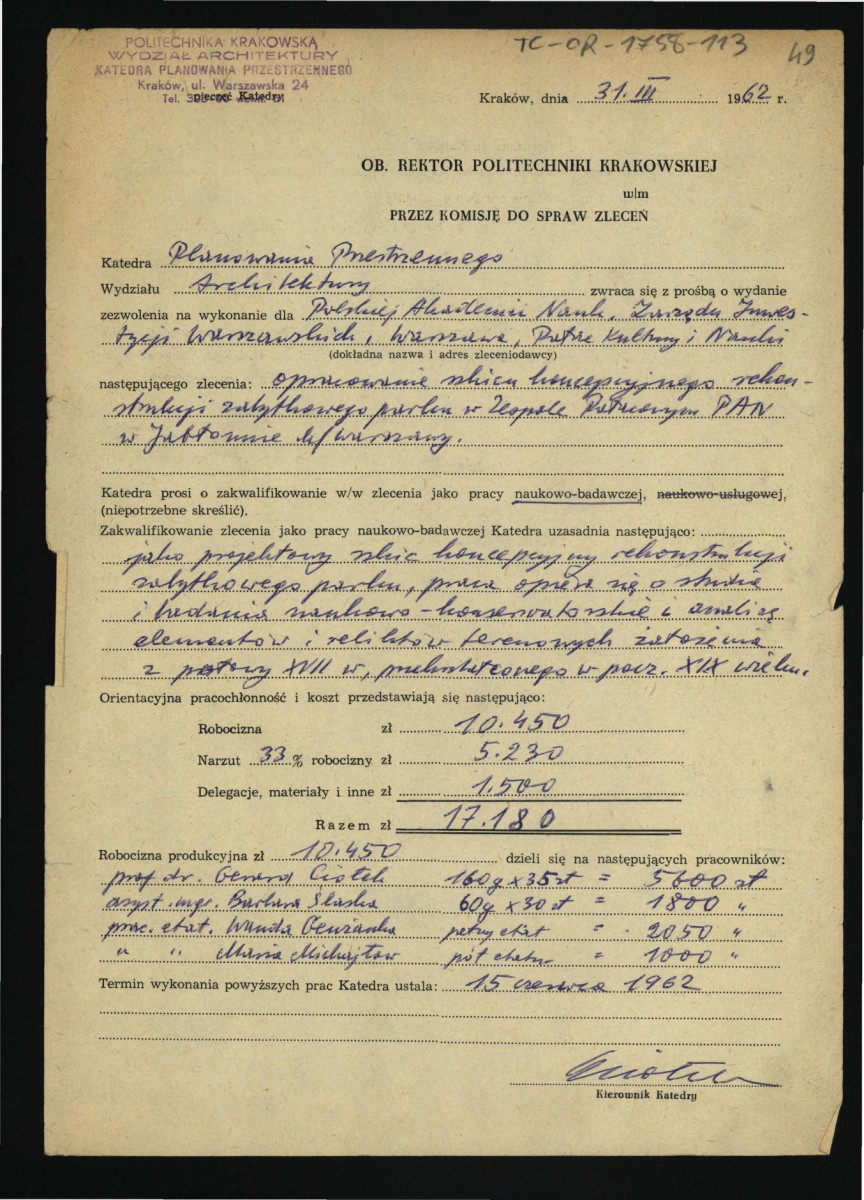 TC-OR-1758-113
49
POLITECHNIKA KRAKOWSKA
WYDZIAŁ ARCHITEKTURY
KATEDRA PLANOWANIA PRZESTRZENNEGO
Kraków, ul. Warszawska 24
pieczęć Katedry
Kraków, dnia 31. III 1962 r.
OB. REKTOR POLITECHNIKI KRAKOWSKIEJ
w/m
PRZEZ KOMISJĘ DO SPRAW ZLECEŃ
Katedra Planowania Przestrzennego
Wydziału Architektury zwraca się z prośbą o wydanie
zezwolenia na wykonanie dla Polskiej Akademii Nauk, Zarządu Inwes-
tycji Warszawskich, Warszawa, Pałac Kultury i Nauki
(dokładna nazwa i adres zleceniodawcy)
następującego zlecenia: opracowanie szkicu koncepcyjnego rekon-
strukcji zabytkowego parku w Zespole Pałacowym PAN
w Jabłonnie k/Warszawy.
Katedra prosi o zakwalifikowanie w/w zlecenia jako pracy naukowo-badawczej, naukowo-usługowej,
(niepotrzebne skreślić).
Zakwalifikowanie zlecenia jako pracy naukowo-badawczej Katedra uzasadnia następująco:
jako projektowy szkic koncepcyjny rekonstrukcji
zabytkowego parku, praca opiera się o studia
i badania naukowo-konserwatorskie i analizę
elementów i reliktów terenowych założenia
z połowy XVII w, przekształconego w pocz. XIX wieku.
Orientacyjna pracochłonność i koszt przedstawiają się następująco:
Robocizna zł 10.450
Narzut 33 % robocizny zł 5.230
Delegacje, materiały i inne zł 1.500
Razem zł 17.180
Robocizna produkcyjna zł 10.450 dzieli się na następujących pracowników:
prof. dr. Gerard Ciołek 160g x 35zł = 5600 zł
asyst. mgr. Barbara 60g x 30 zł = 1800 "
prac. etat. Wanda Genżanka etat = 2050 "
" " Maria Michajłow pół etatu = 1000 "
Termin wykonania powyższych prac Katedra ustala: 15 czerwca 1962
Ciołek
Kierownik Katedry